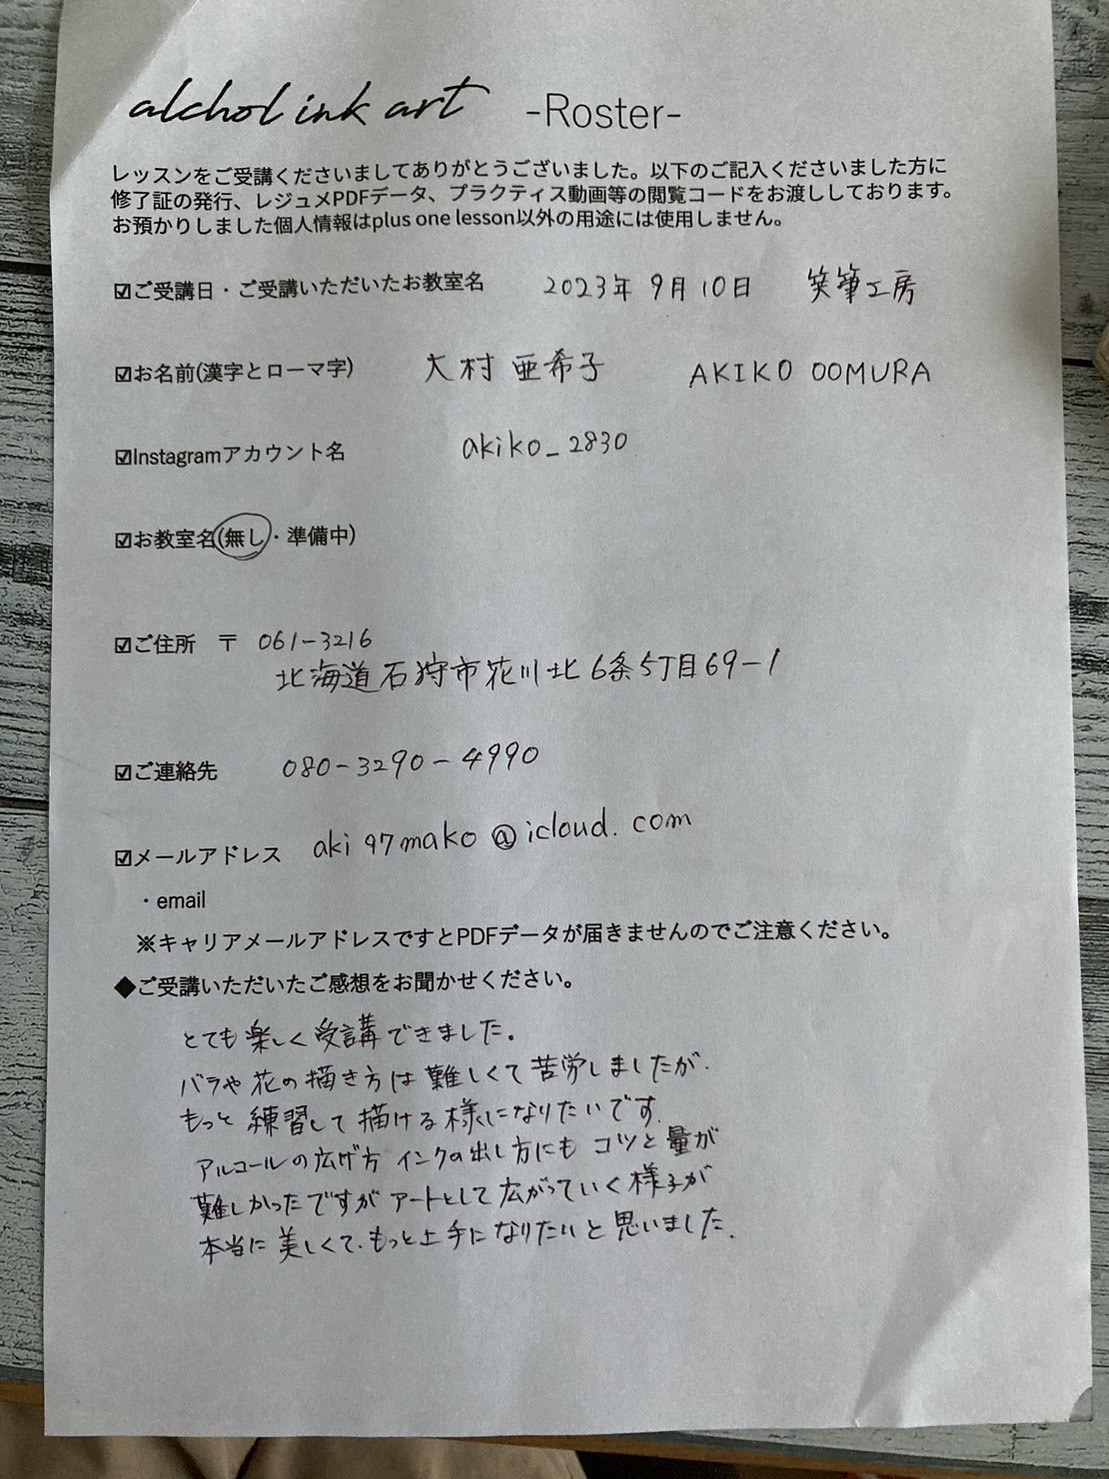 alchol ink art -Roster-
レッスンをご受講くださいましてありがとうございました。以下のご記入くださいました方に
修了証の発行、レジュメPDFデータ、プラクティス動画等の閲覧コードをお渡ししております。
お預かりしました個人情報はplus one lesson以外の用途には使用しません。
☑ご受講日・ご受講いただいたお教室名 2023年9月10日 笑筆工房
☑お名前(漢字とローマ字) 大村 亜希子 AKIKO OOMURA
☑Instagramアカウント名 akiko_2830
☑お教室名(無し・準備中)
☑ご住所 〒 061-3216
北海道石狩市花川北6条5丁目69-1
☑ご連絡先 080-3290-4990
☑メールアドレス aki97mako@icloud.com
・email
※キャリアメールアドレスですとPDFデータが届きませんのでご注意ください。
◆ご受講いただいたご感想をお聞かせください。
とても楽しく受講できました。
バラや花の描き方は難しくて苦労しましたが、
もっと練習して描ける様になりたいです。
アルコールの広げ方 インクの出し方にも コツと量が
難しかったですが アートとして広がっていく様子が
本当に美しくて、もっと上手になりたいと思いました。